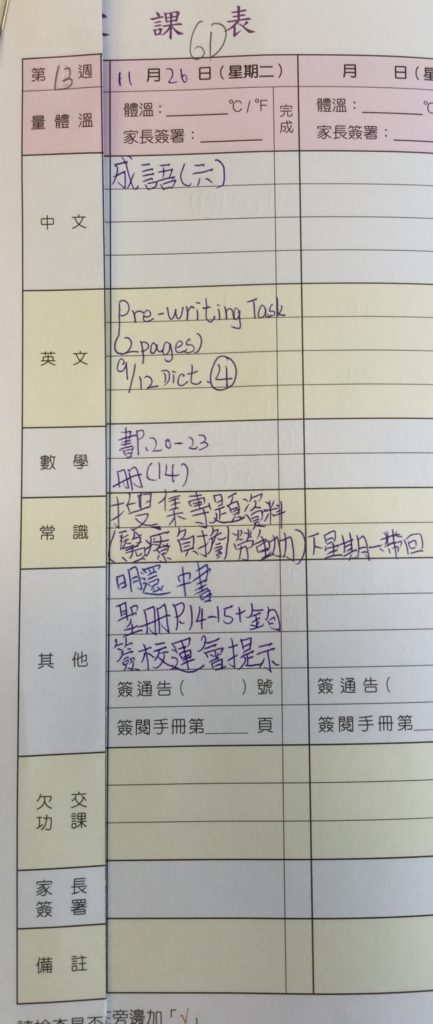 課 表
6D
第13週
11月26日(星期二)
月 日(星
量體溫
體溫:______°C/°F
完成
體溫:______°C
家長簽署:______
家長簽署:
中文
成語(六)
英文
Pre-writing Task
(2pages)
9/12 Dict.④
數學
書P.20-23
冊(14)
常識
搜集專題資料
(醫療負擔/勞動力)下星期一帶回
其他
明還 中書
聖冊P.14-15+
簽校運會提示
簽通告( )號
簽通告(
簽閱手冊第____頁
簽閱手冊第
欠交功課
家長簽署
備註
旁邊加「√」